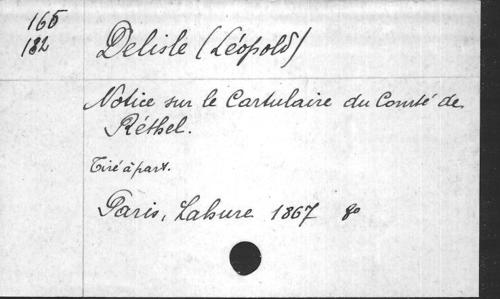 165
182
Delisle (Léopold)
Notice sur le Cartulaire du Comté de
Réthel.
Tiré à part.
Paris, Lahure 1867 8o